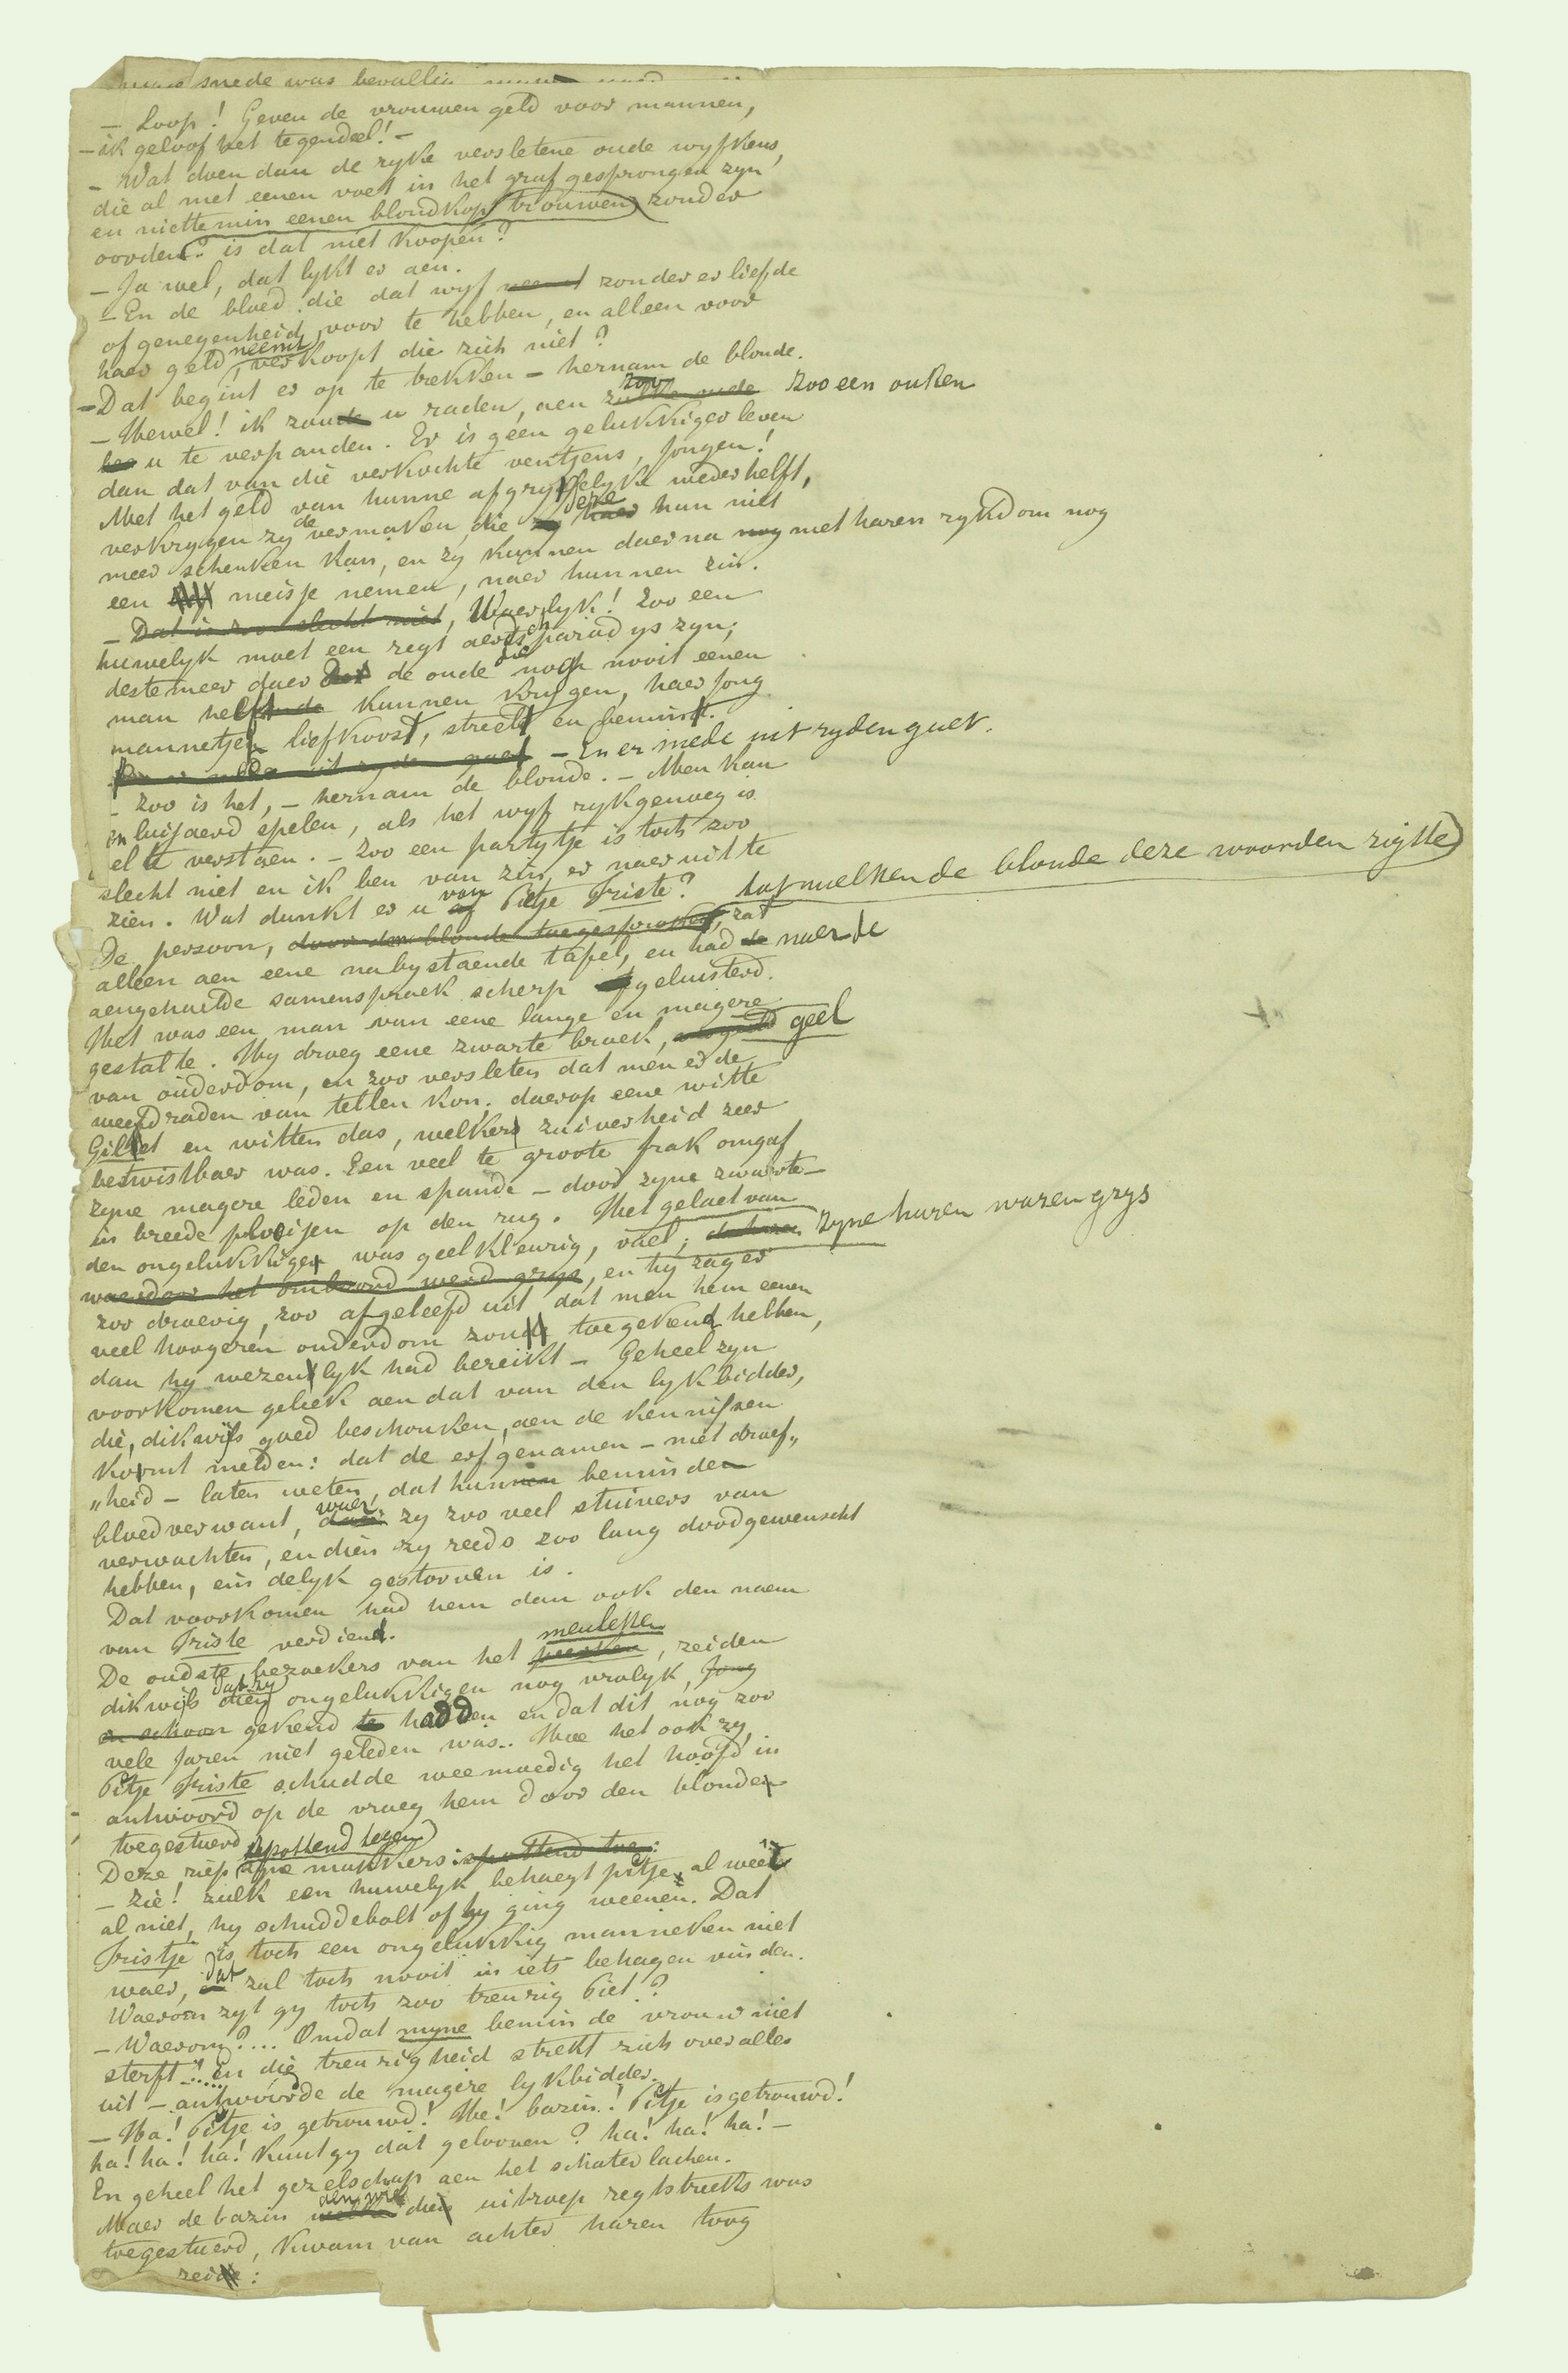 snede was bevallig
— Loop! Geven de vrouwen geld voor mannen,
— ik geloof het tegendeel! —
— Wat doen dan de ryke versletene oude wyfkens,
die al met eenen voet in het graf gesprongen zyn
en niettemin eenen blondkop trouwen zonder
oorden? is dat niet koopen?
— Ja wel, dat lykt er aen.
— En de bloed die dat wyf neemt zonder er liefde
of genegenheid voor te hebben, en alleen voor
haer geld neemt, verkoopt die zich niet?
— Dat begint er op te trekken — hernam de blonde.
— Hewel! ik zoude u raden, aen zoo zulke oude zoo een ouken
u te verpanden. Er is geen gelukkiger leven
dan dat van die verkochte ventjens, jongen!
Met het geld van hunne afgryslyke wederhelft,
verkrygen zy de vermaken, die zy haer deze hun niet
meer schenken kan, en zy kunnen daerna nog met haren rykdom nog
een meisje nemen, naer hunnen zin.
— Dat is zoo slecht niet, Waerlyk! Zoo een
huwelyk moet een regt aerdsch paradys zyn;
deste meer daer de oude die nogh nooit eenen
man heeft kunnen krygen, haer jong
mannetjen liefkoost, streelt en bemint.
En er mede uit ryden gaet — En er mede uit ryden gaet.
— Zoo is het, — hernam de blonde. — Men kan
en luijaerd spelen, als het wyf ryk genoeg is
el te verstaen. — Zoo een partytje is toch zoo
slecht niet en ik ben van zin, er naer uit te
zien. Wat dunkt er u van Pitje Triste?
De persoon, door den blonde toegesproken, tot welken de blonde deze woorden rigtte, zat
alleen aen eene nabystaende tafel, en had de naer de
aengehaelde samenspraek scherp geluisterd.
Het was een man van eene lange en magere
gestalte. Hy droeg eene zwarte broek, geel
van ouderdom, en zoo versleten dat men er de
weefdraden van tellen kon; daerop eene witte
Gillet en witten das, welkers zuiverheid zeer
betwistbaer was. Een veel te groote frak omgaf
zyne magere leden en spande — door zyne zwaerte —
in breede plooijen op den rug. Het gelaet van
den ongelukkigen was geelkleurig, vael; de haren zyne haren waren grys
waerdoor het omboord werd grys, en hy zag er
zoo droevig, zoo afgeleefd uit dat men hem eenen
veel hoogeren ouderdom zoude toegekend hebben,
dan hy wezenlyk had bereikt — Geheel zyn
voorkomen geleek aen dat van den lykbidder,
die, dikwijls goed beschonken, aen de kennissen
komt melden: dat de erfgenamen — met droef„
„heid — laten weten, dat hunnen beminden
bloedverwant, daer waer zy zoo veel stuivers van
verwachten, en dien zy reeds zoo lang doodgewenscht
hebben, eindelyk gestorven is.
Dat voorkomen had hem dan ook den naem
van Triste verdiend.
De oudste bezoekers van het meuleken, zeiden
dikwijls dat zy dien ongelukkigen nog vrolyk, jong
en schoon gekend te hadden en dat dit nog zoo
vele jaren niet geleden was. Hoe het ook zy,
Pitje Triste schudde weemoedig het hoofd in
antwoord op de vraeg hem door den blonden
toegestuerd
Deze riep spottend tegen zyne makkers: spottend toe:
— Zie! zulk een huwelyk behaegt pitje al weêr
al niet, hy schuddebolt of hy ging weenen. Dat
Tristje is toch een ongelukkig manneken niet
waer, dat zal toch nooit in iets behagen vinden.
Waerom zyt gy toch zoo treurig Piet?
— Waerom?.... Omdat myne beminde vrouw niet
sterft...... En die treurigheid strekt zich over alles
uit — antwoorde de magere lykbidder.
— Ha! Pitje is getrouwd! He! bazin! Pitje is getrouwd!
ha! ha! ha! kunt gy dat gelooven? ha! ha! ha! —
En geheel het gezelschap aen het schaterlachen.
Maer de bazin aen wie dien uitroep regtstreeks was
toegestuerd, kwam van achter haren toog
zeide: